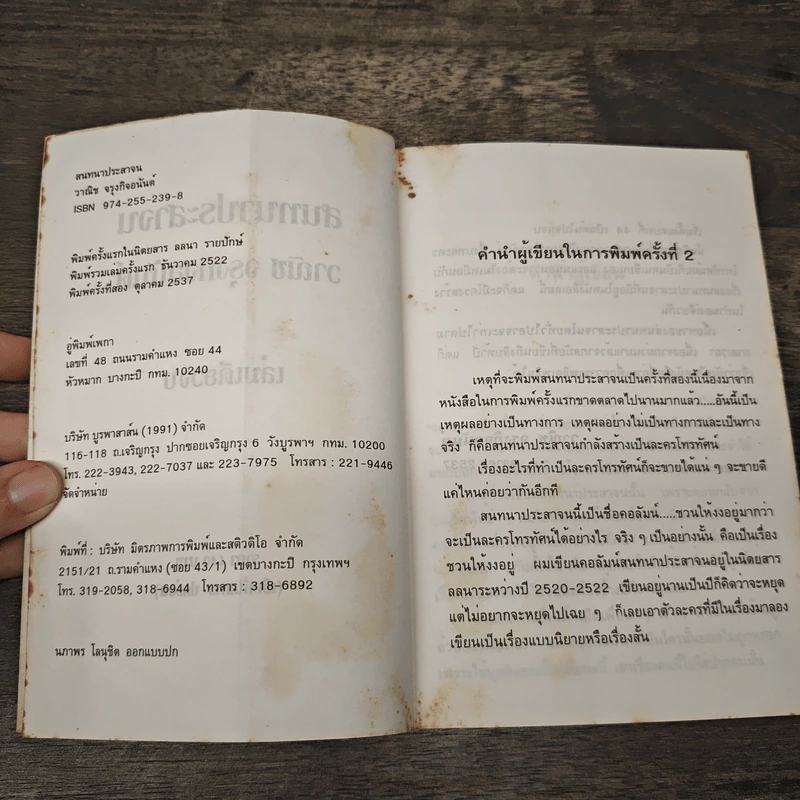 สนทนาประสาจน
วาณิช จรุงกิจอนันต์
ISBN 974-255-239-8
พิมพ์ครั้งแรกในนิตยสาร ลลนา รายปักษ์
พิมพ์รวมเล่มครั้งแรก ธันวาคม 2522
พิมพ์ครั้งที่สอง ตุลาคม 2537
อู่พิมพ์เพกา
เลขที่ 48 ถนนรามคำแหง ซอย 44
หัวหมาก บางกะปิ กทม. 10240
บริษัท บูรพาสาส์น (1991) จำกัด
116-118 ถ.เจริญกรุง ปากซอยเจริญกรุง 6 วังบูรพาฯ กทม. 10200
โทร. 222-3943, 222-7037 และ 223-7975 โทรสาร : 221-9446
จัดจำหน่าย
พิมพ์ที่ : บริษัท มิตรภาพการพิมพ์และสติวดิโอ จำกัด
2151/21 ถ.รามคำแหง (ซอย 43/1) เขตบางกะปิ กรุงเทพฯ
โทร. 319-2058, 318-6944 โทรสาร : 318-6892
นภาพร โลนุชิต ออกแบบปก
คำนำผู้เขียนในการพิมพ์ครั้งที่ 2
เหตุที่จะพิมพ์สนทนาประสาจนเป็นครั้งที่สองนี้เนื่องมาจาก
หนังสือในการพิมพ์ครั้งแรกขาดตลาดไปนานมากแล้ว.....อันนี้เป็น
เหตุผลอย่างเป็นทางการ เหตุผลอย่างไม่เป็นทางการและเป็นทาง
จริง ก็คือสนทนาประสาจนกำลังสร้างเป็นละครโทรทัศน์
เรื่องอะไรที่ทำเป็นละครโทรทัศน์ก็จะขายได้แน่ ๆ จะขายดี
แค่ไหนค่อยว่ากันอีกที
สนทนาประสาจนนี้เป็นชื่อคอลัมน์.....ชวนให้งงอยู่มากว่า
จะเป็นละครโทรทัศน์ได้อย่างไร จริง ๆ เป็นอย่างนั้น คือเป็นเรื่อง
ชวนให้งงอยู่ ผมเขียนคอลัมน์สนทนาประสาจนอยู่ในนิตยสาร
ลลนาระหว่างปี 2520-2522 เขียนอยู่นานเป็นปีก็คิดว่าจะหยุด
แต่ไม่อยากจะหยุดไปเฉย ๆ ก็เลยเอาตัวละครที่มีในเรื่องมาลอง
เขียนเป็นเรื่องแบบนิยายหรือเรื่องสั้น